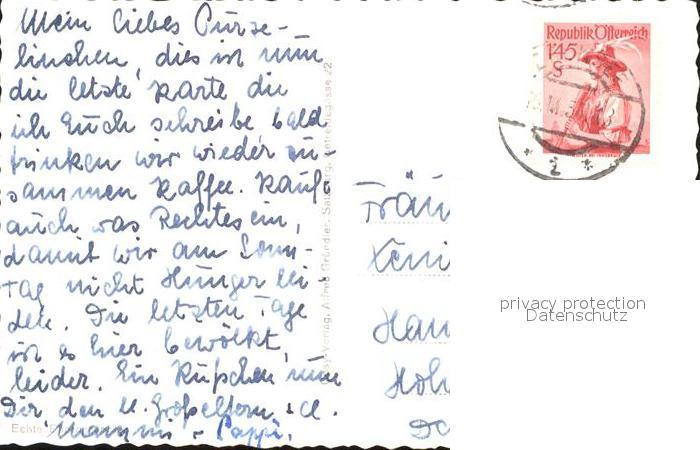 Mein liebes Purze-
linchen, dies ist nun
die letzte Karte die
ich Euch schreibe, bald
trinken wir wieder zu-
sammen Kaffee. Kauft
auch was Rechtes ein,
damit wir am Sonn-
Tag nicht Hunger lei
den. Die letzten Tage
ist es hier bewölkt,
leider. Ein Küßchen nun
Dir den U. Großeltern. & U.
Mammi - Pappi.
Echte
Verlag, Alfred Gründler, Salzburg,
Republik Österreich
1'45
S
2
Fräu
Xeni
Han
Hoh
privacy protection
Datenschutz